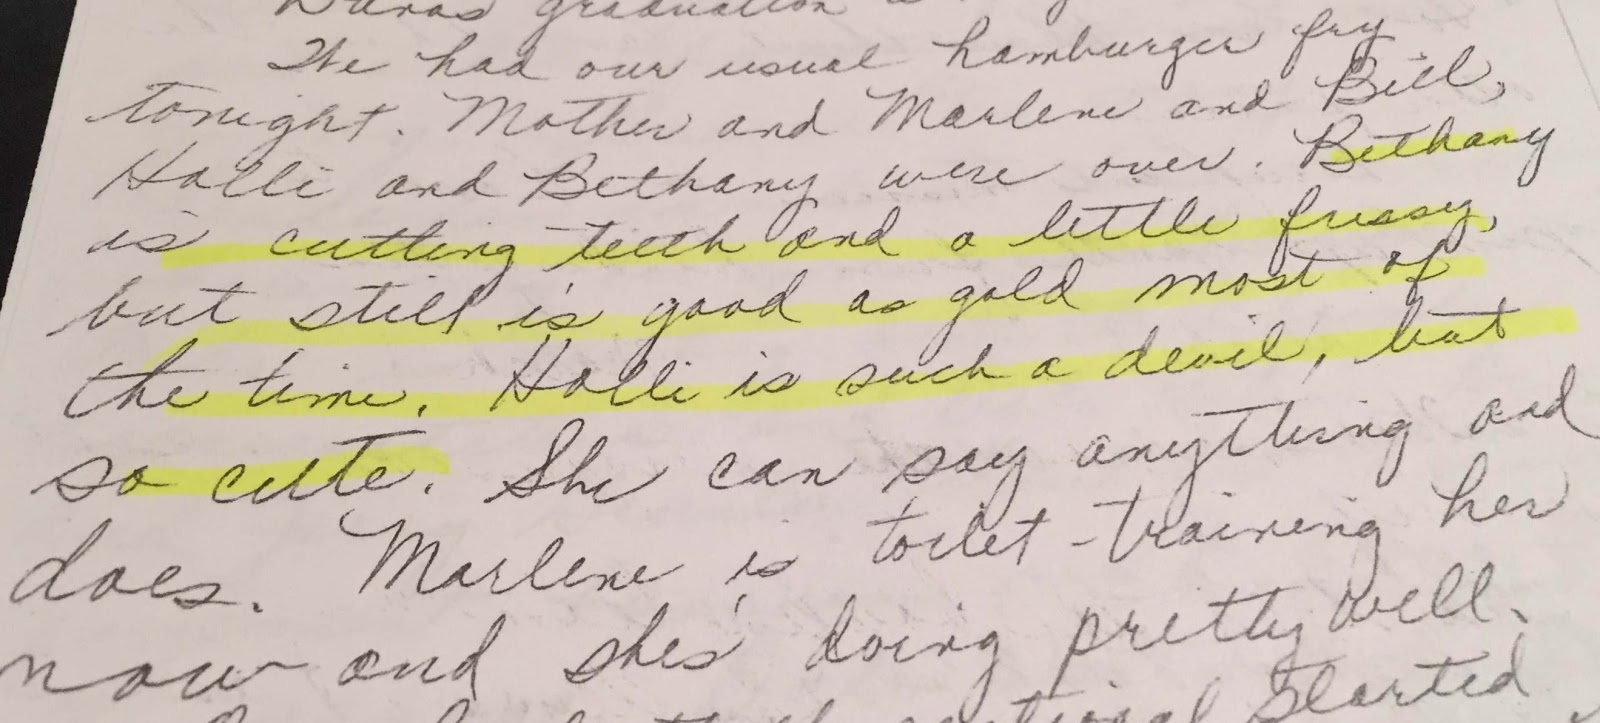 graduation
We had our usual hamburger fry
tonight. Mother and Marlene and Bill,
Halli and Bethany were over. Bethany
is cutting teeth and a little fussy,
but still is good as gold most of
the time. Halli is such a devil, but
so cute. She can say anything and
does. Marlene is toilet-training her
now and she's doing pretty well.
started